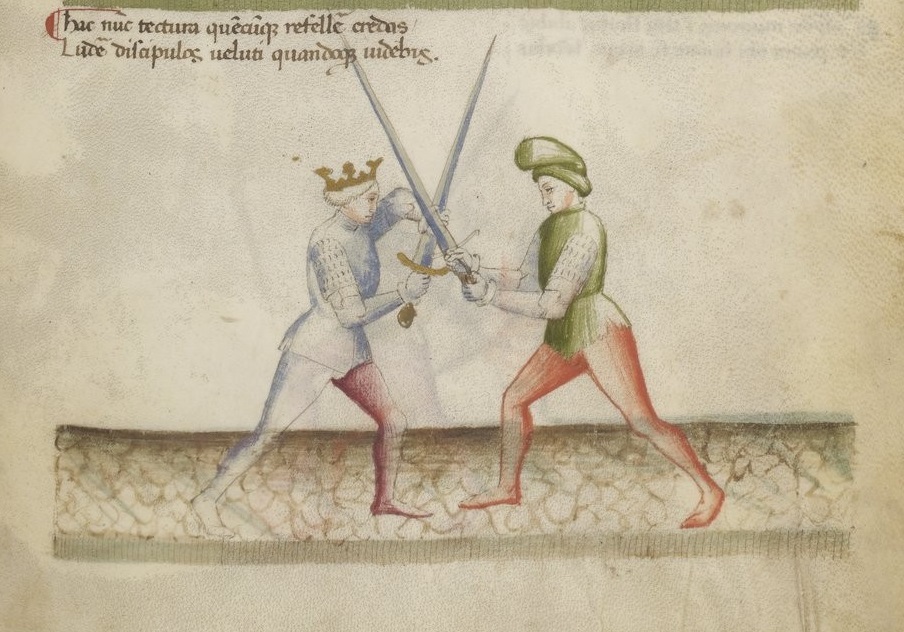 Hac nũc tectura quẽcũq; refellẽ credas /
Ludẽ discipulos veluti quandoq; videbis.